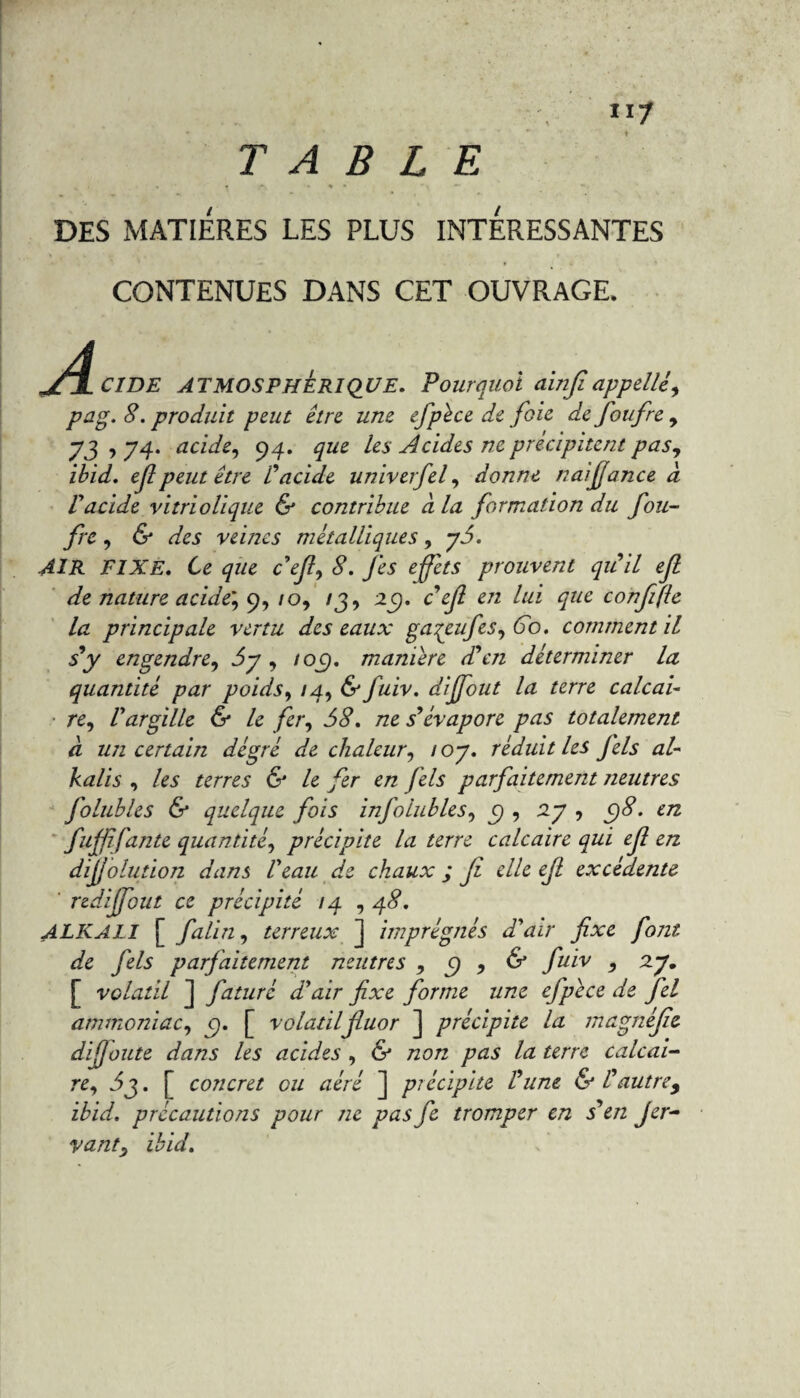 117
TABLE
DES MATIÉRES LES PLUS INTÉRESSANTES
CONTENUES DANS CET OUVRAGE.
ACIDE ATMOSPHÈRIQUE. Pourquoi ainſi appellé,
pag. 8. produit peut être une eſpèce de foie de ſoufre,
73, 74. acide, 94. que les Acides ne précipitent pas,
ibid. eſt peut être l'acide univerſel, donne naiſſance à
l'acide vitriolique & contribue à la formation du ſou-
fre, & des veines métalliques, 75.
AIR FIXE. Ce que c'eſt, 8. ſes effets prouvent qu'il eſt
de nature acide, 9, 10, 13, 29. c'eſt en lui que conſiſte
la principale vertu des eaux gazeuſes, 60. comment il
s'y engendre, 57, 109. manière d'en déterminer la
quantité par poids, 14, & ſuiv. diſſout la terre calcai-
re, l'argille & le fer, 58. ne s'évapore pas totalement
à un certain dégré de chaleur, 107. réduit les ſels al-
kalis, les terres & le fer en ſels parfaitement neutres
ſolubles & quelque fois inſolubles, 9, 27, 98. en
ſuffiſante quantité, précipite la terre calcaire qui eſt en
diſſolution dans l'eau de chaux; ſi elle eſt excédente
rediſſout ce précipité 14, 48.
ALKALI [ ſalin, terreux ] imprégnés d'air fixe ſont
de ſels parfaitement neutres, 9, & ſuiv, 27.
[ volatil ] ſaturé d'air fixe forme une eſpèce de ſel
ammoniac, 9. [ volatil fluor ] précipite la magnéſie
diſſoute dans les acides, & non pas la terre calcai-
re, 53. [ concret ou aéré ] précipite l'une & l'autre,
ibid. précautions pour ne pas ſe tromper en s'en ſer-
vant, ibid.